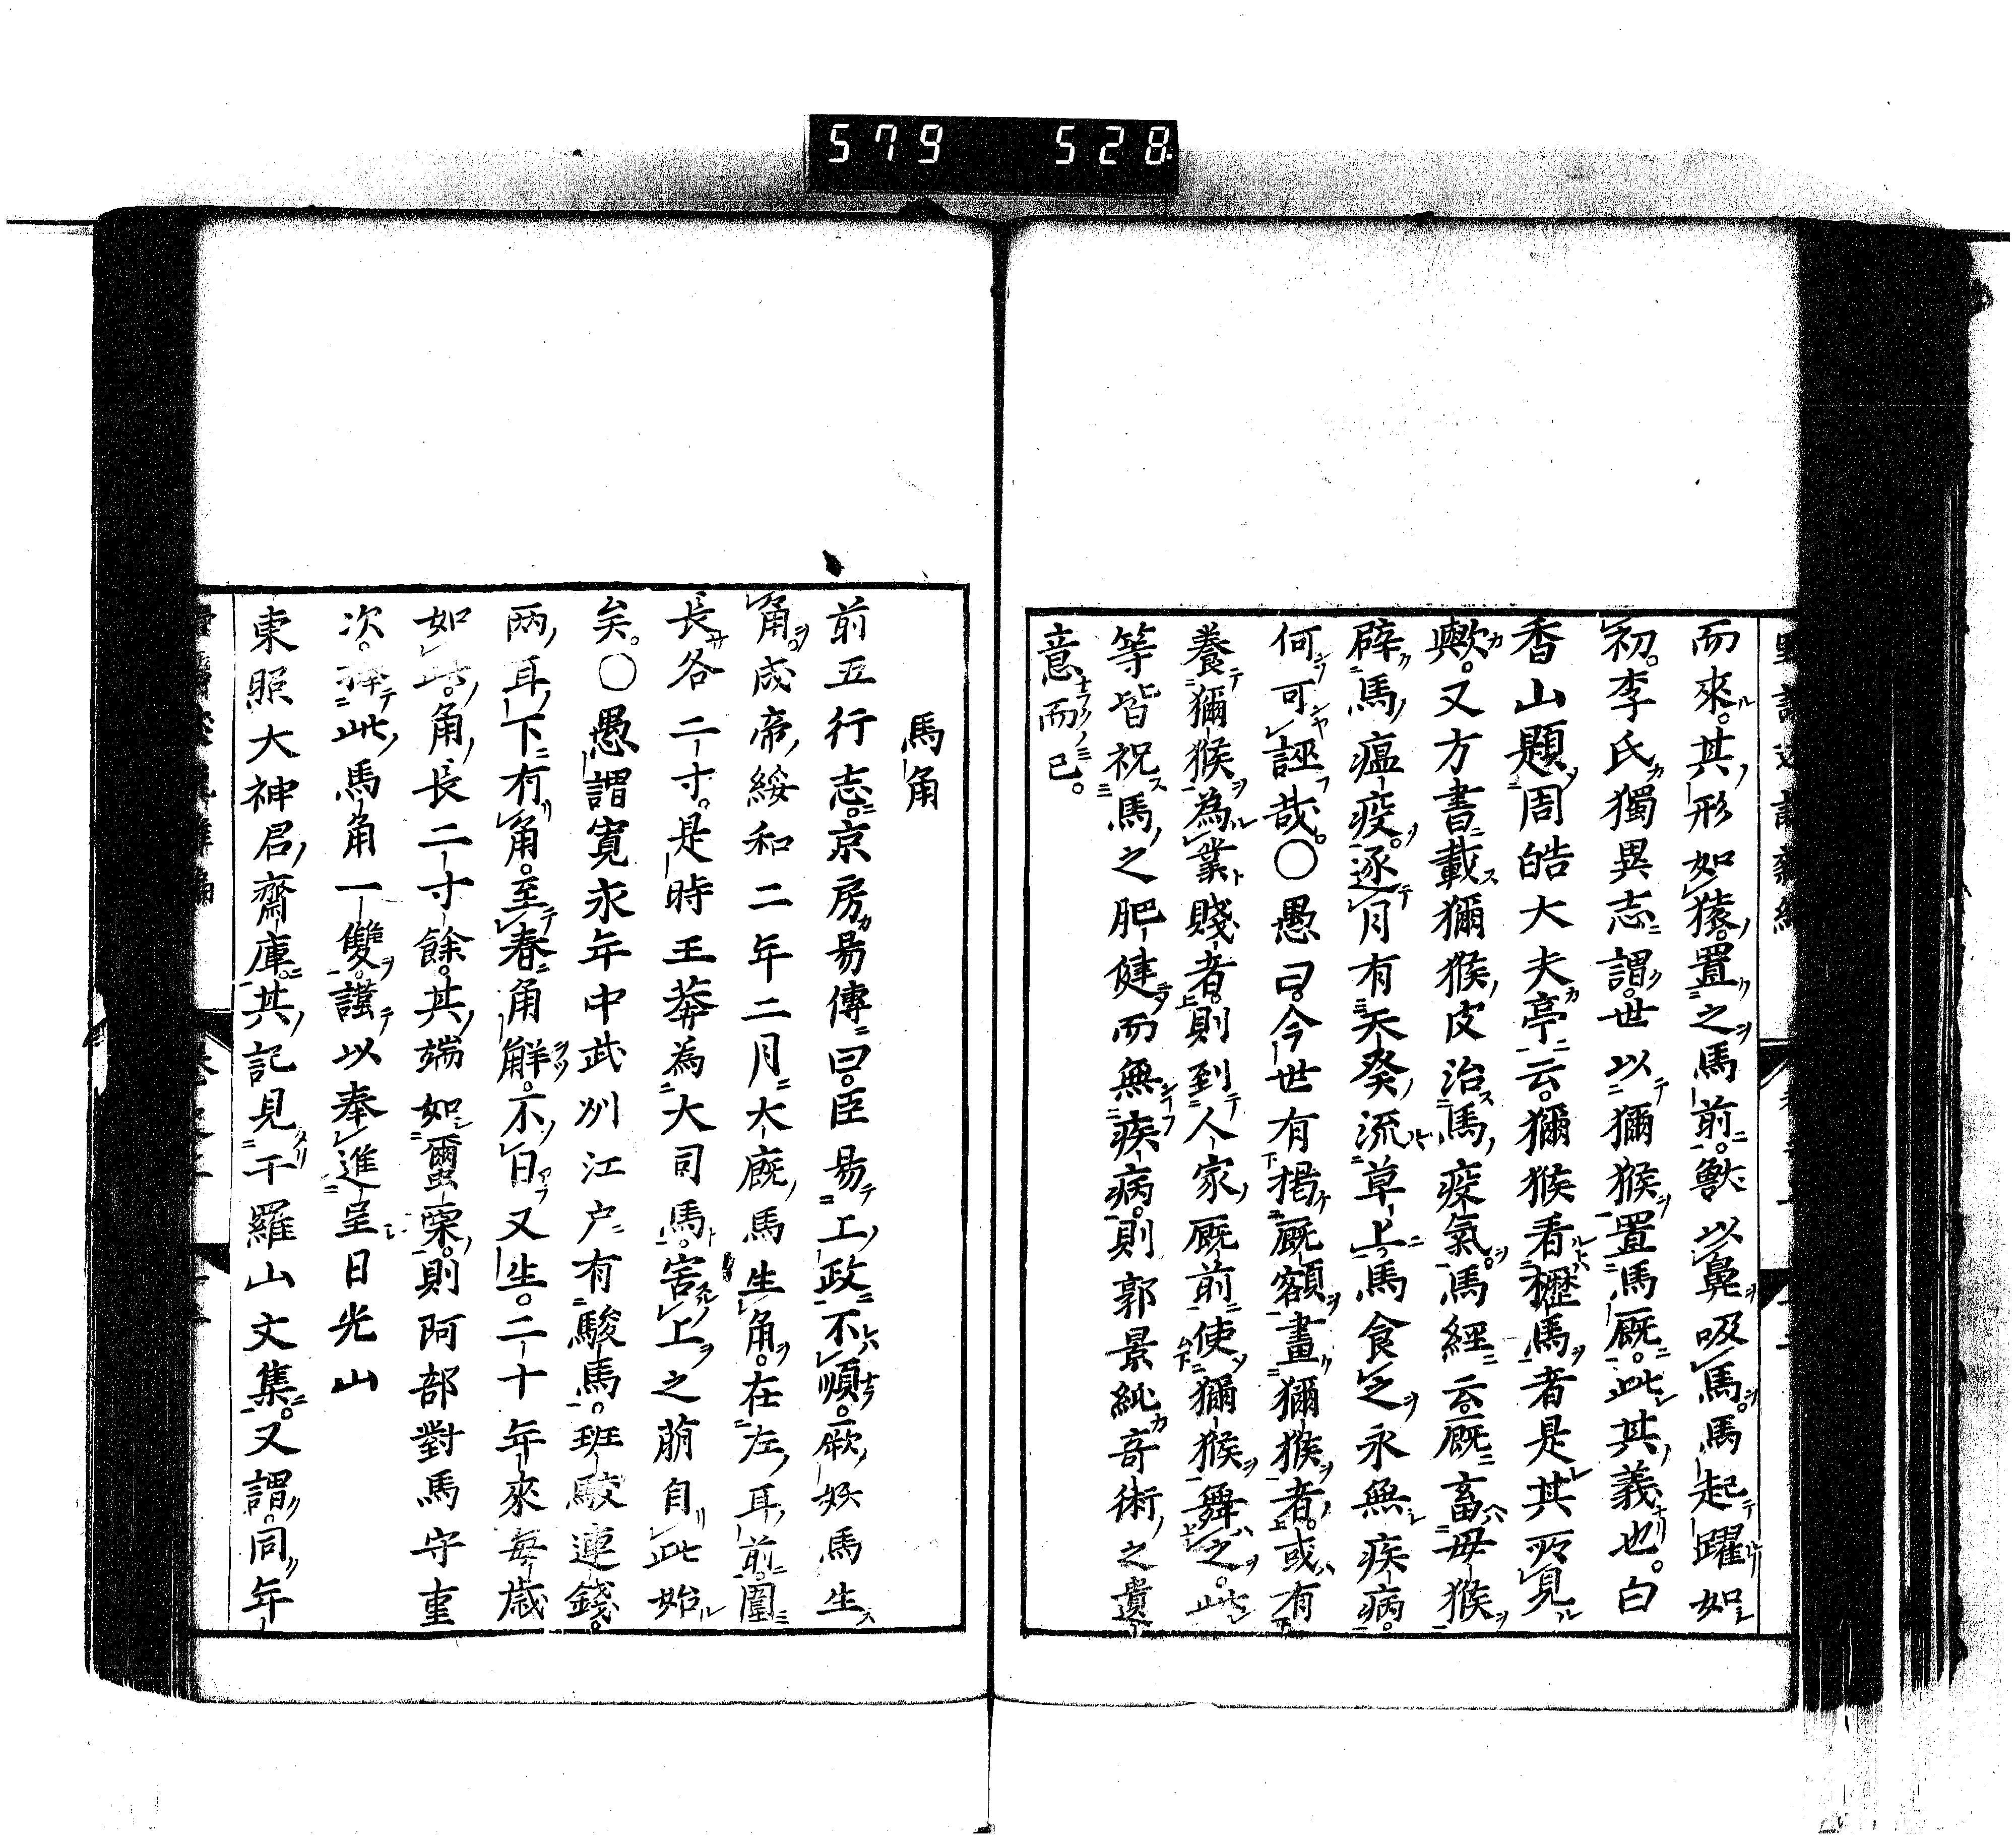 579 528
而來。其形如猿。置之馬前。獸以鼻吸馬。馬起躍如
初。李氏獨異志謂。世以獼猴置馬厩。此其義也。白
香山題周皓大夫亭云。獼猴看櫪馬者是其所見
歟。又方書載獼猴皮治馬疫氣。馬經云厩畜母猴
辟馬瘟疫。逐月有天癸流草上。馬食之永無疾病。
何可誣哉。○愚曰。今世有揭厩額畫獼猴者。或有
養獼猴為業賤者。則到人家厩前使獼猴舞之。此
等皆祝馬之肥健而無疾病。則郭景純奇術之遺
意而已。
馬角
前五行志。京房易傳曰。臣易上政不順。厥妖馬生
角。成帝綏和二年二月大廐馬生角。在左耳前。圍
長各二寸。是時王莽為大司馬。害上之萠自此始
矣。○愚謂寬永年中武州江戸有駿馬。班駮連錢。
兩耳下有角。至春角解。不日又生。二十年來每歲
如此。角長二寸餘。其端如蠒栗。則阿部對馬守重
次。捧此馬角一雙。謹以奉進呈日光山
東照大神君齋庫。其記見于羅山文集。又謂。同年